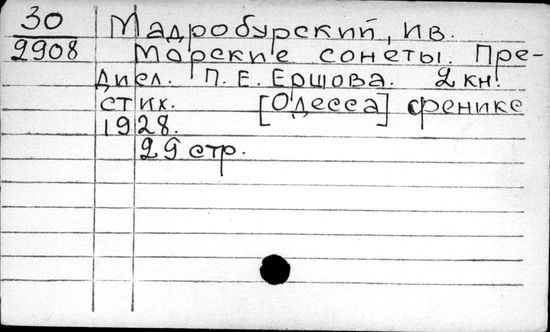 30
2908
Мадробурский, Ив.
Морские сонеты. Пре-
дисл. П. Е. Ершова. 2 кн.
стих. [Одесса] Феникс
1928.
29 стр.